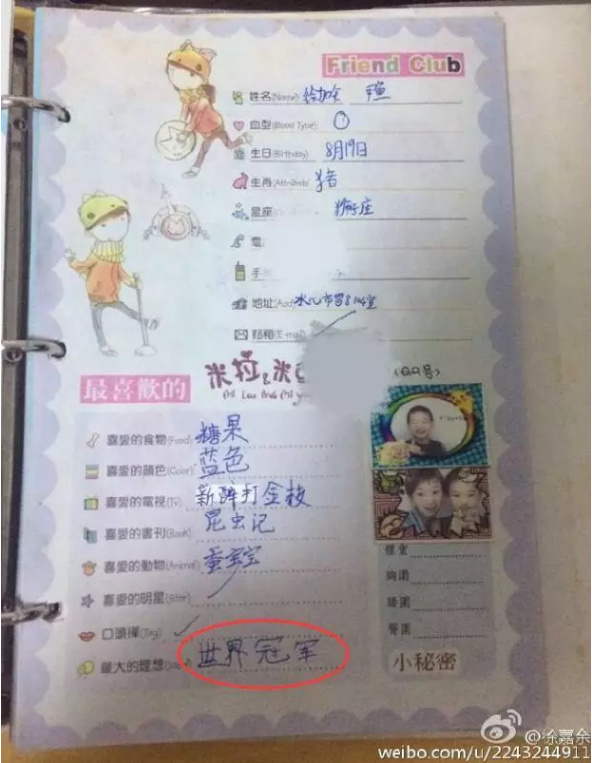 Friend Club
姓名(Name)
血型(Blood Type) O
生日(Birthday) 8月19日
生肖 猪
星座 狮子座
电
手
地址
邮箱(E-mail)
(QQ号)
最喜歡的
喜愛的食物(Food) 糖果
喜愛的顏色(Color) 蓝色
喜愛的電視(TV) 新醉打金枝
喜愛的書刊(Book) 昆虫记
喜愛的動物(Animal) 蚕宝宝
喜愛的明星(Star)
口頭禪
最大的理想 世界冠军
體重
胸圍
腰圍
臀圍
小秘密
@徐嘉余
weibo.com/u/2243244911